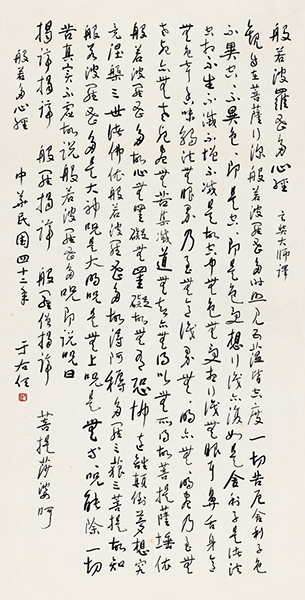 般若波羅蜜多心經 玄奘大師譯
觀自在菩薩行深般若波羅蜜多時照見五蘊皆空度一切苦厄舍利子色
不異空空不異色色即是空空即是色受想行識亦復如是舍利子是諸法
空相不生不滅不增不減是故空中無色無受想行識無眼耳鼻舌身意
無色聲香味觸法無眼界乃至無意識界無無明亦無無明盡乃至無
老死亦無老死盡無苦集滅道無智亦無得以無所得故菩提薩埵依
般若波羅蜜多故心無罣礙無罣礙故無有恐怖遠離顛倒夢想究
竟涅槃三世諸佛依般若波羅蜜多故得阿耨多羅三藐三菩提故知
般若波羅蜜多是大神咒是大明咒是無上咒是無等等咒能除一切
苦真實不虛故說般若波羅蜜多咒即說咒曰
揭諦揭諦 般羅揭諦 般羅僧揭諦 菩提薩婆訶
般若多心經 中華民國四十二年 于右任